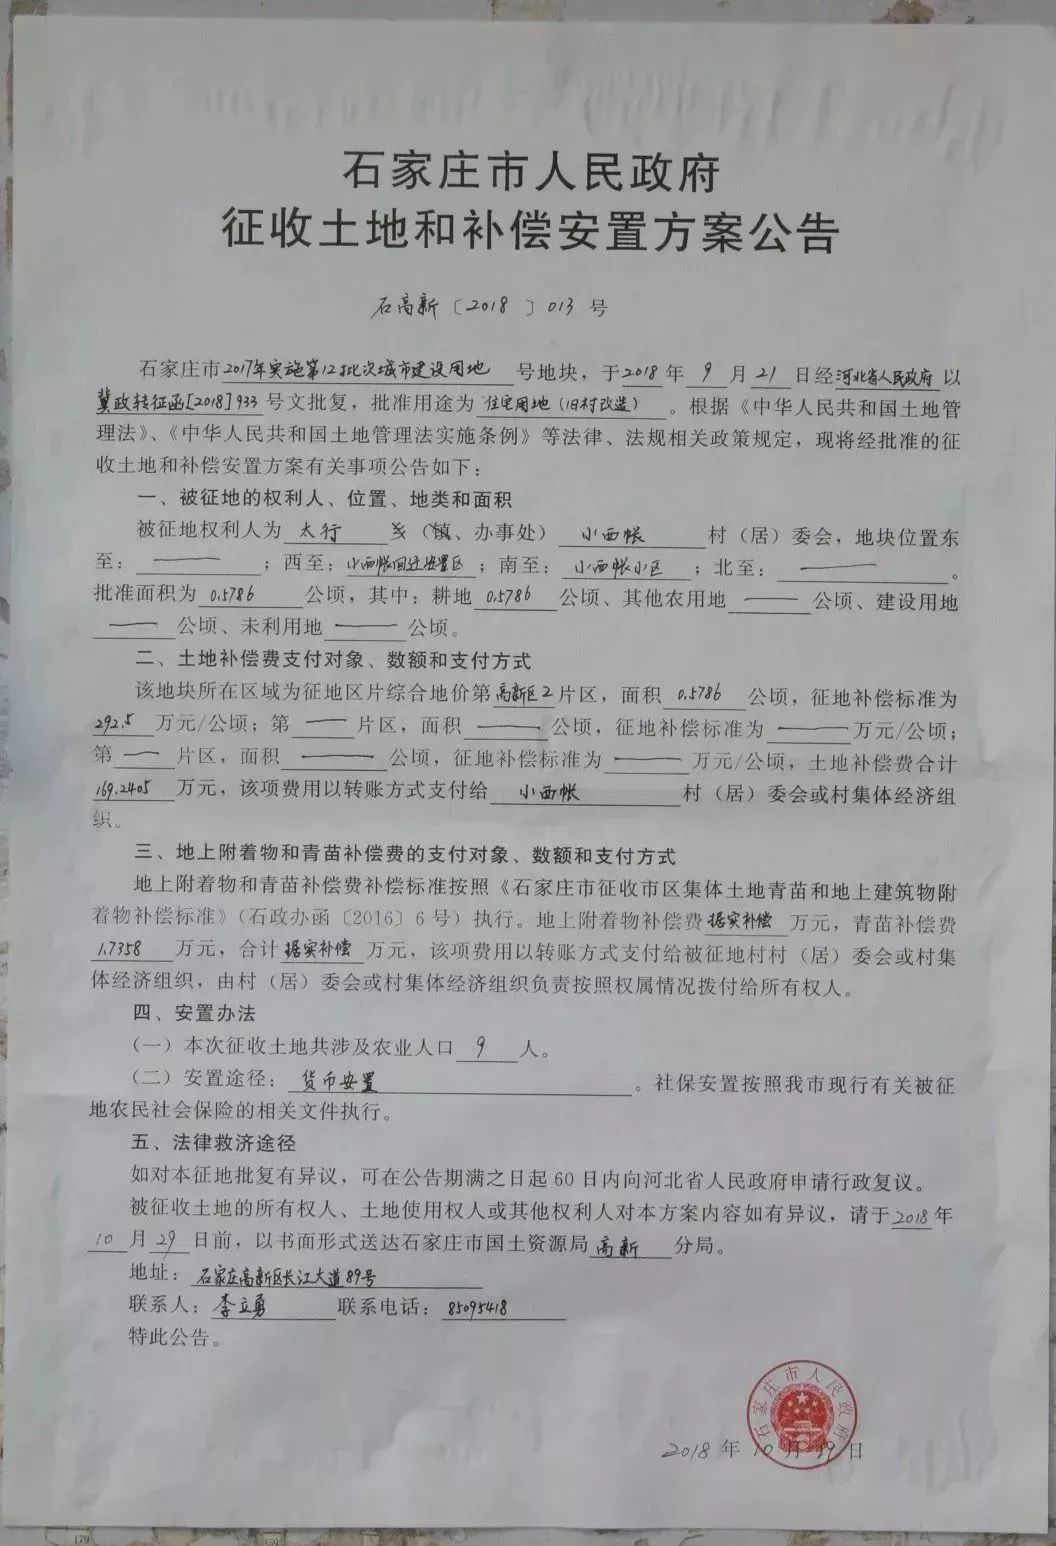 石家庄市人民政府
征收土地和补偿安置方案公告
石高新〔2018〕013号
石家庄市2017年实施第12批次城市建设用地号地块，于2018年9月21日经河北省人民政府以
冀政转征函[2018]933号文批复，批准用途为住宅用地（旧村改造）。根据《中华人民共和国土地管
理法》、《中华人民共和国土地管理法实施条例》等法律、法规相关政策规定，现将经批准的征
收土地和补偿安置方案有关事项公告如下：
一、被征地的权利人、位置、地类和面积
被征地权利人为太行乡（镇、办事处）小西帐村（居）委会，地块位置东
至：——；西至：小西帐回迁安置区；南至：小西帐小区；北至：——。
批准面积为0.5786公顷，其中：耕地0.5786公顷、其他农用地——公顷、建设用地
——公顷、未利用地——公顷。
二、土地补偿费支付对象、数额和支付方式
该地块所在区域为征地区片综合地价第高新区2片区，面积0.5786公顷，征地补偿标准为
292.5万元/公顷；第——片区，面积——公顷，征地补偿标准为——万元/公顷；
第——片区，面积——公顷，征地补偿标准为——万元/公顷，土地补偿费合计
169.2405万元，该项费用以转账方式支付给小西帐村（居）委会或村集体经济组
织。
三、地上附着物和青苗补偿费的支付对象、数额和支付方式
地上附着物和青苗补偿费补偿标准按照《石家庄市征收市区集体土地青苗和地上建筑物附
着物补偿标准》（石政办函〔2016〕6号）执行。地上附着物补偿费据实补偿万元，青苗补偿费
1.7358万元，合计据实补偿万元，该项费用以转账方式支付给被征地村村（居）委会或村集
体经济组织，由村（居）委会或村集体经济组织负责按照权属情况拨付给所有权人。
四、安置办法
（一）本次征收土地共涉及农业人口9人。
（二）安置途径：货币安置。社保安置按照我市现行有关被征
地农民社会保险的相关文件执行。
五、法律救济途径
如对本征地批复有异议，可在公告期满之日起60日内向河北省人民政府申请行政复议。
被征收土地的所有权人、土地使用权人或其他权利人对本方案内容如有异议，请于2018年
10月29日前，以书面形式送达石家庄市国土资源局高新分局。
地址：石家庄高新区长江大道89号
联系人：李立勇 联系电话：85095418
特此公告。
石家庄市人民政府
2018年10月19日
179